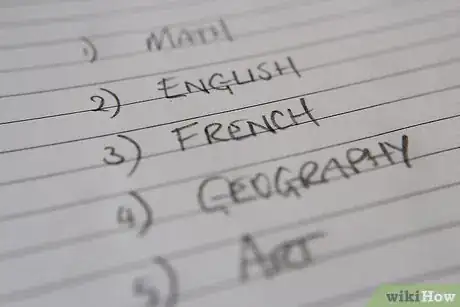 1) MATH
2) ENGLISH
3) FRENCH
4) GEOGRAPHY
5) ART
wikiHow